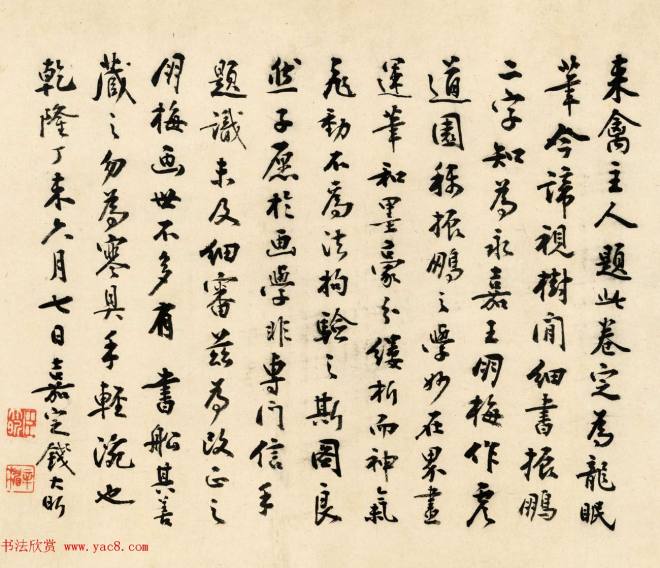 來禽主人題此卷定為龍眠
筆今諦視樹間細書振鵬
二字知為永嘉王朋梅作虞
道園稱振鵬之學妙在界畫
運筆和墨毫分縷析而神氣
飛動不為法拘驗之斯圖良
然子愿於画學非專門信手
題識未及細審茲為改正之
朋梅画世不多有書船其善
藏之勿為寒具手輕涴也
乾隆丁未六月七日嘉定錢大昕
书法欣赏 www.yac8.com